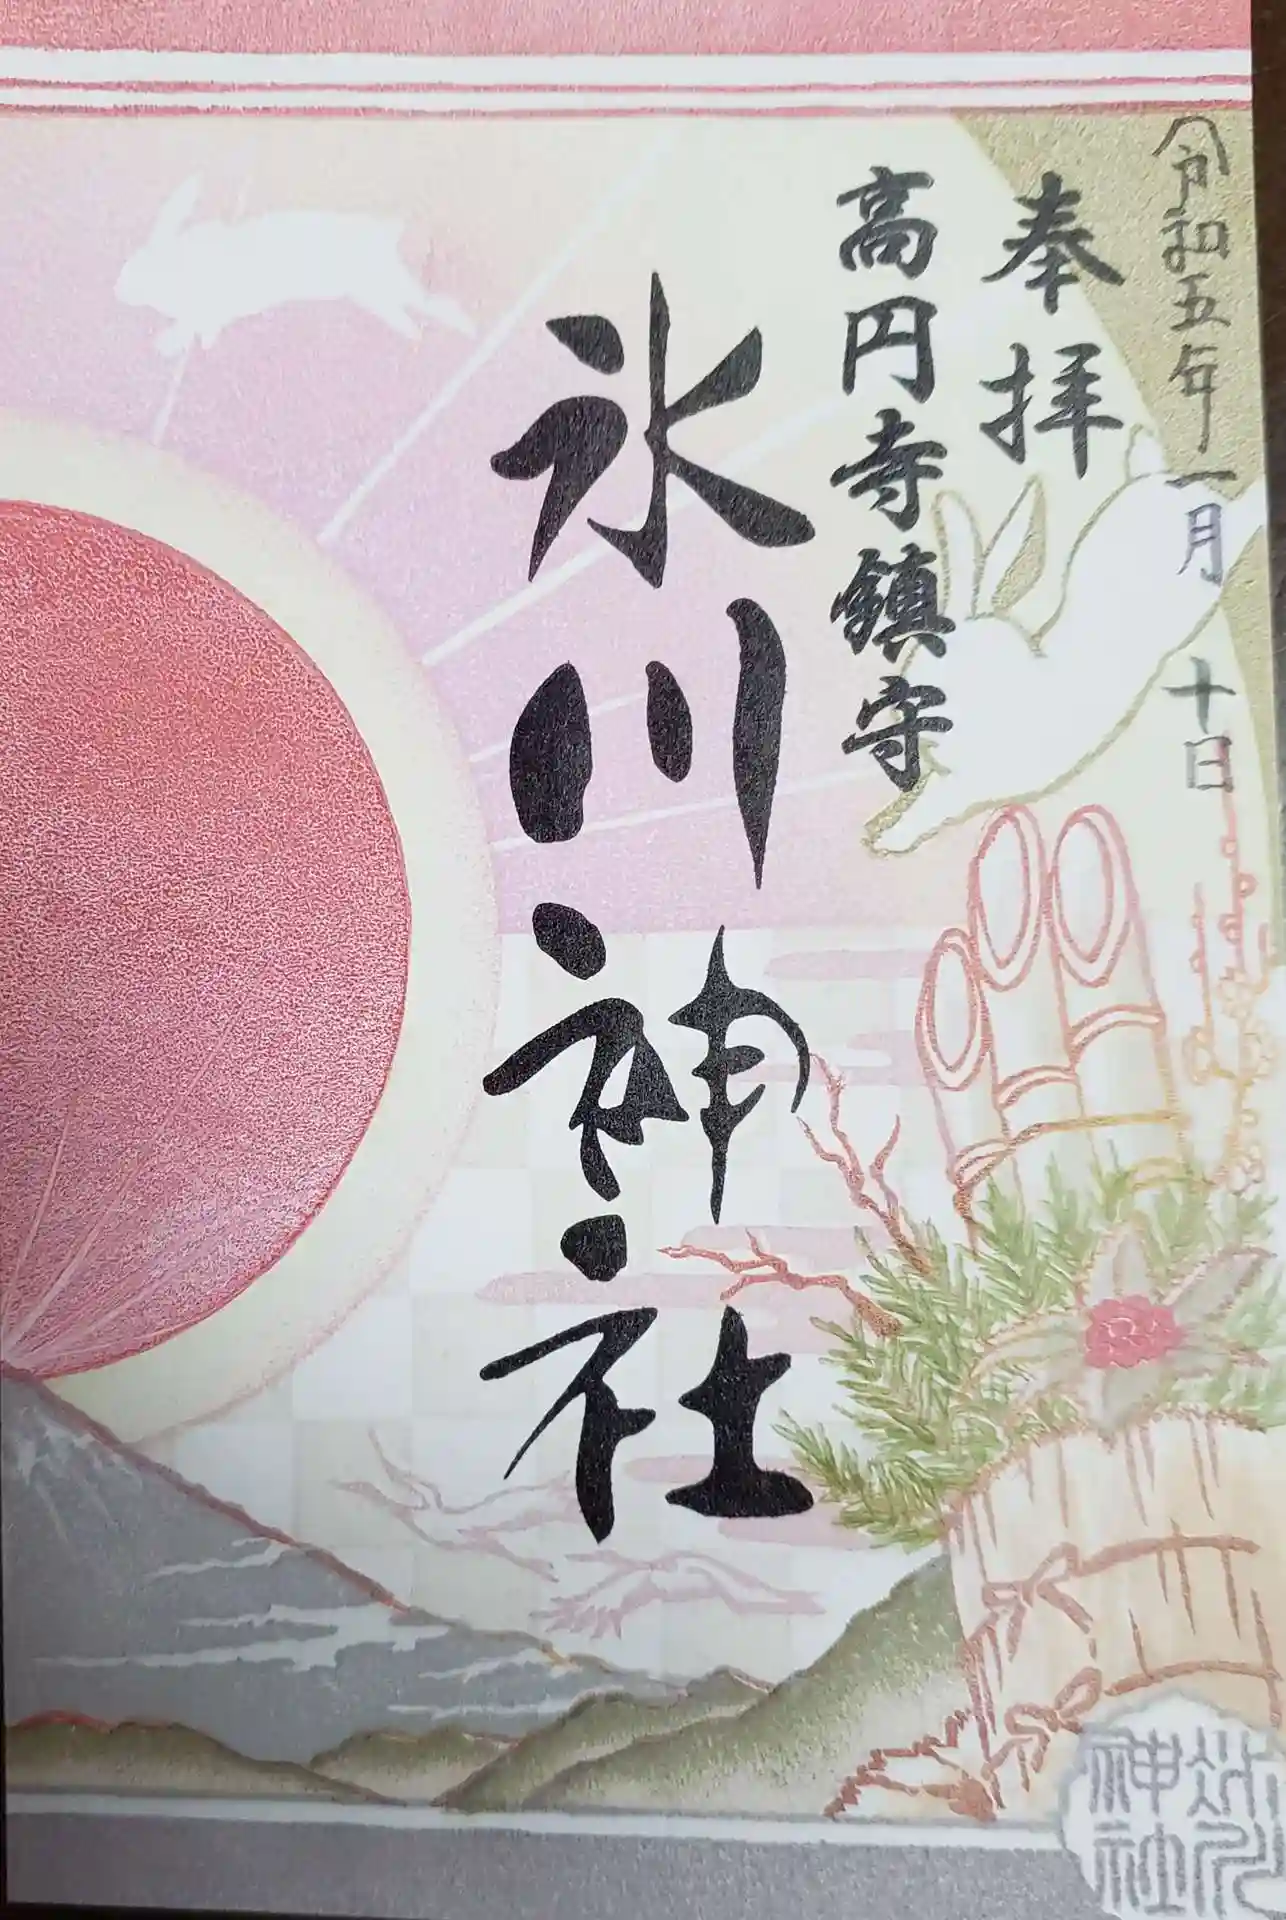 令和五年一月十日
奉拝
高円寺鎮守
氷川神社
氷川
神社